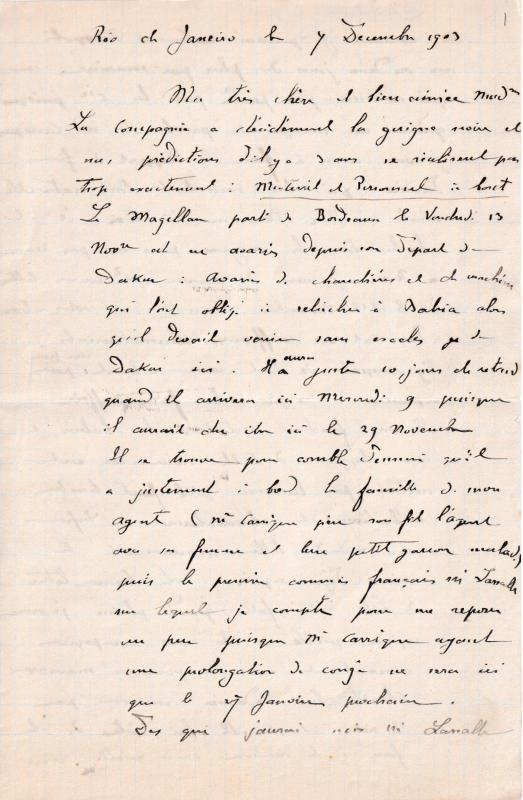 1
Rio de Janeiro le 7 Decembre 1903
Ma très chère et bien aimée
La Compagnie a décidément la guigne noire et
mes prédictions d'il y a 3 ans se réalisent
trop exactement : Matériel et Personnel à bout
Le Magellan parti de Bordeaux le Vendredi 13
Novre est en avaries depuis son départ de
Dakar : Avaries de chaudières et de machine
qui l'ont obligé à relâcher à Bahia alors
qu'il devait venir sans escales de
Dakar ici. Il aura juste 10 jours de retard
quand il arrivera ici Mercredi 9 puisque
il aurait du être ici le 29 Novembre
Il se trouve pour comble d'ennui qu'il
a justement à bord la famille de mon
agent ( Mr Carrique père son fils l'agent
avec sa femme et leur petit garcon malade)
puis le premier commis français Mr Lassalle
sur lequel je compte pour me reposer
un peu puisque Mr Carrique ayant
une prolongation de congé ne sera ici
que le 27 Janvier prochain.
Des que j'aurai Mr Lassalle